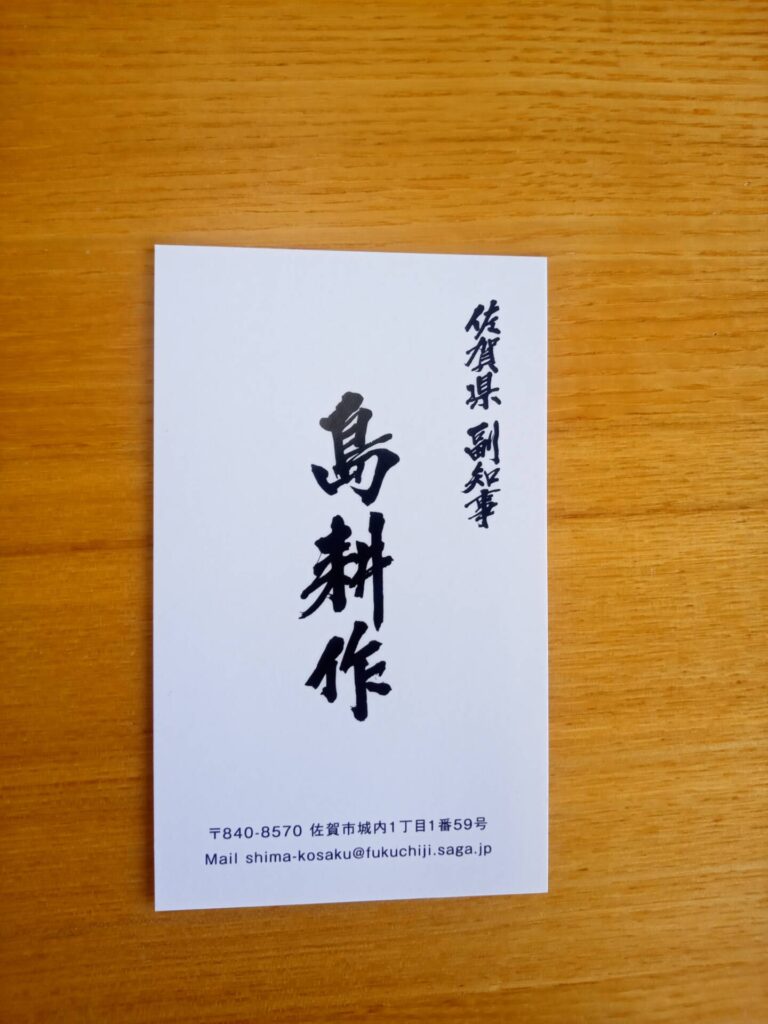 佐賀県 副知事
島耕作
〒840-8570 佐賀市城内1丁目1番59号
Mail shima-kosaku@fukuchiji.saga.jp